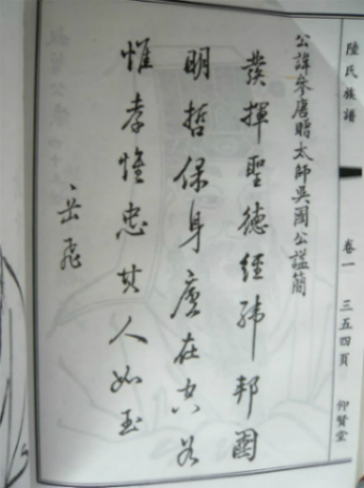 陸氏族譜
卷一
三五四頁
仰賢堂
公諱參唐贈太師吳國公諡簡
發揮聖德經緯邦國
明哲保身慶在
惟孝惟忠其人如玉
岳飛